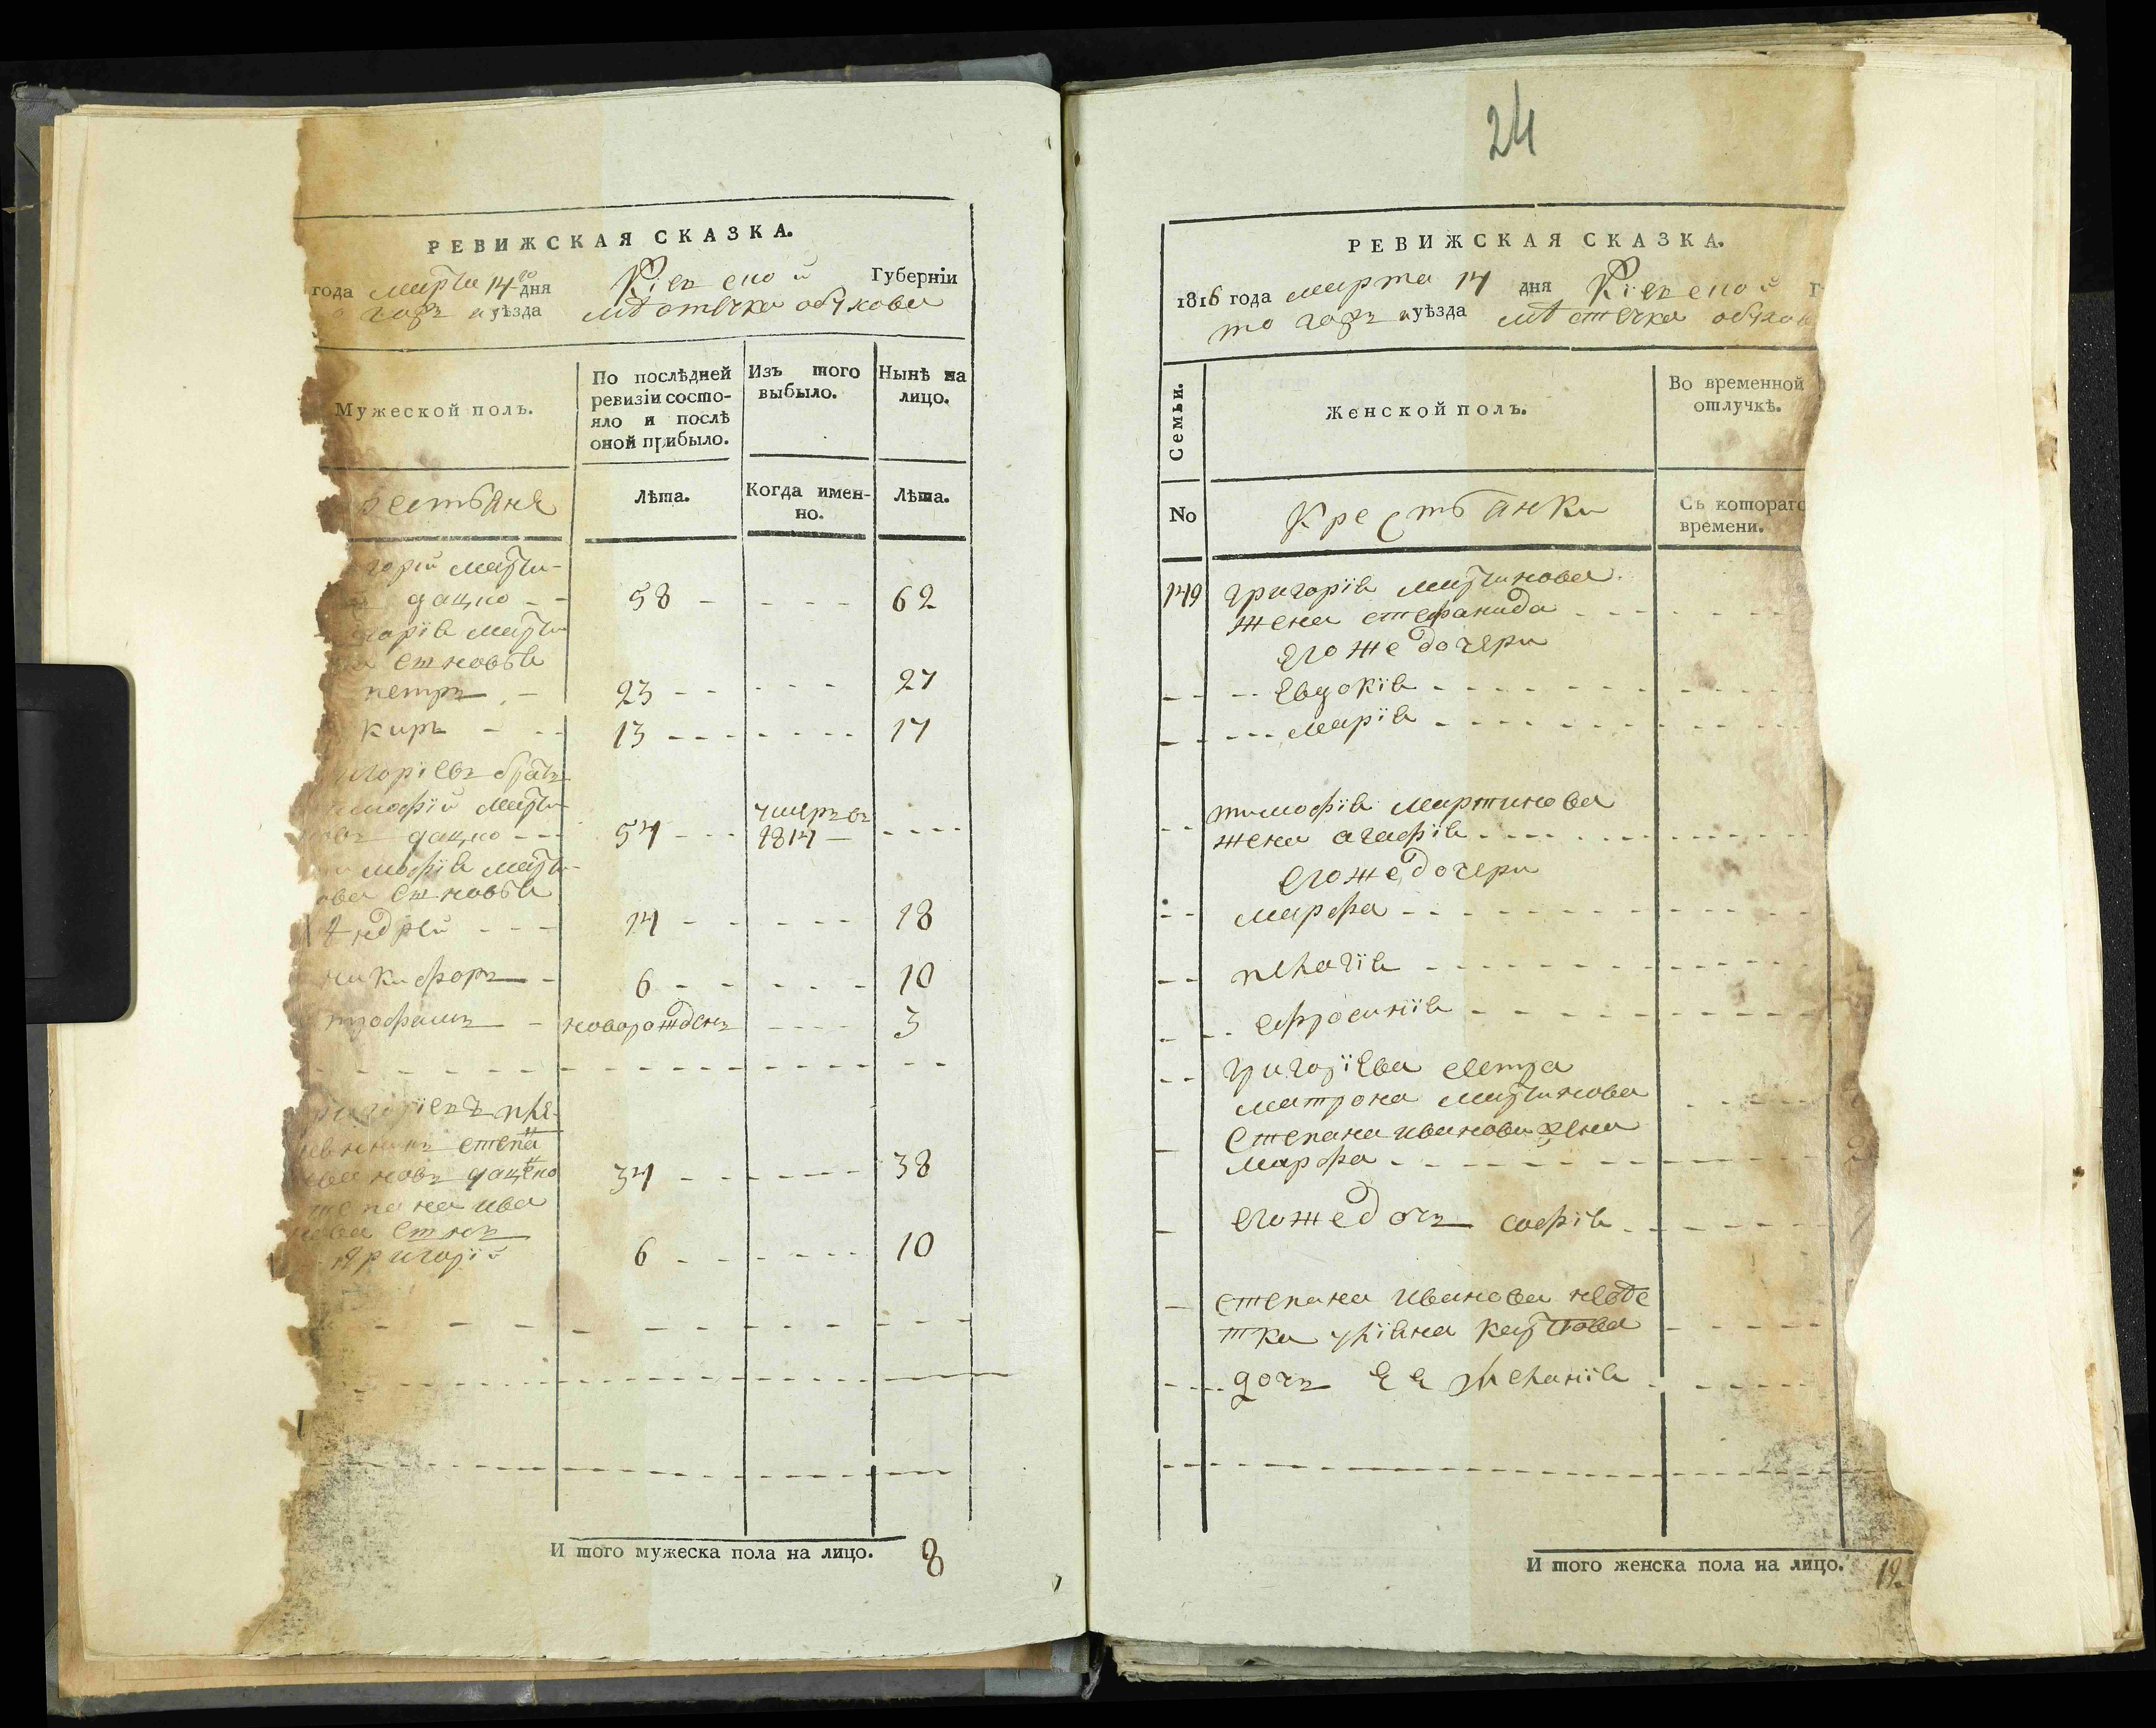 РЕВИЖСКАЯ СКАЗКА.
года марта 14го дня Кіевской Губерніи
уѣзда мѣстечка обухова
Мужеской полъ.
По послѣдней ревизіи состо-
яло и послѣ оной прибыло.
Изъ того выбыло.
Нынѣ на лицо.
Лѣта.
Когда имен-
но.
Лѣта.
горій марти-
дацко 58 62
горія марти
сыновья
петръ 23 27
киръ 13 17
игоріевъ братъ
имофій марти
новъ дацко 54 умеръ въ 1814
мофія марти-
ова сыновья
Андрей 14 18
никифоръ 6 10
трофимъ новорожденъ 3
ригоріевъ пле-
степа
ивановъ даценко 34 38
степана ива
нова сынъ
григорій 6 10
И того мужеска пола на лицо. 8
24
РЕВИЖСКАЯ СКАЗКА.
1816 года марта 14 дня Кіевской Г
го уѣзда мѣстечка обухов
Семьи.
Женской полъ.
Во временной
отлучкѣ.
No
Крестьянки
Съ котораго
времени.
149 григорія мартинова
жена стефанида
его же дочери
Евдокія
марія
тимофія мартинова
жена агафія
его же дочери
марфа
пелагія
ефросинія
григоріева сестра
матрона мартинова
степана иванова жена
марфа
его же дочъ софія
степана иванова невѣ
тка уліяна
дочъ ее меланія
И того женска пола на лицо. 12